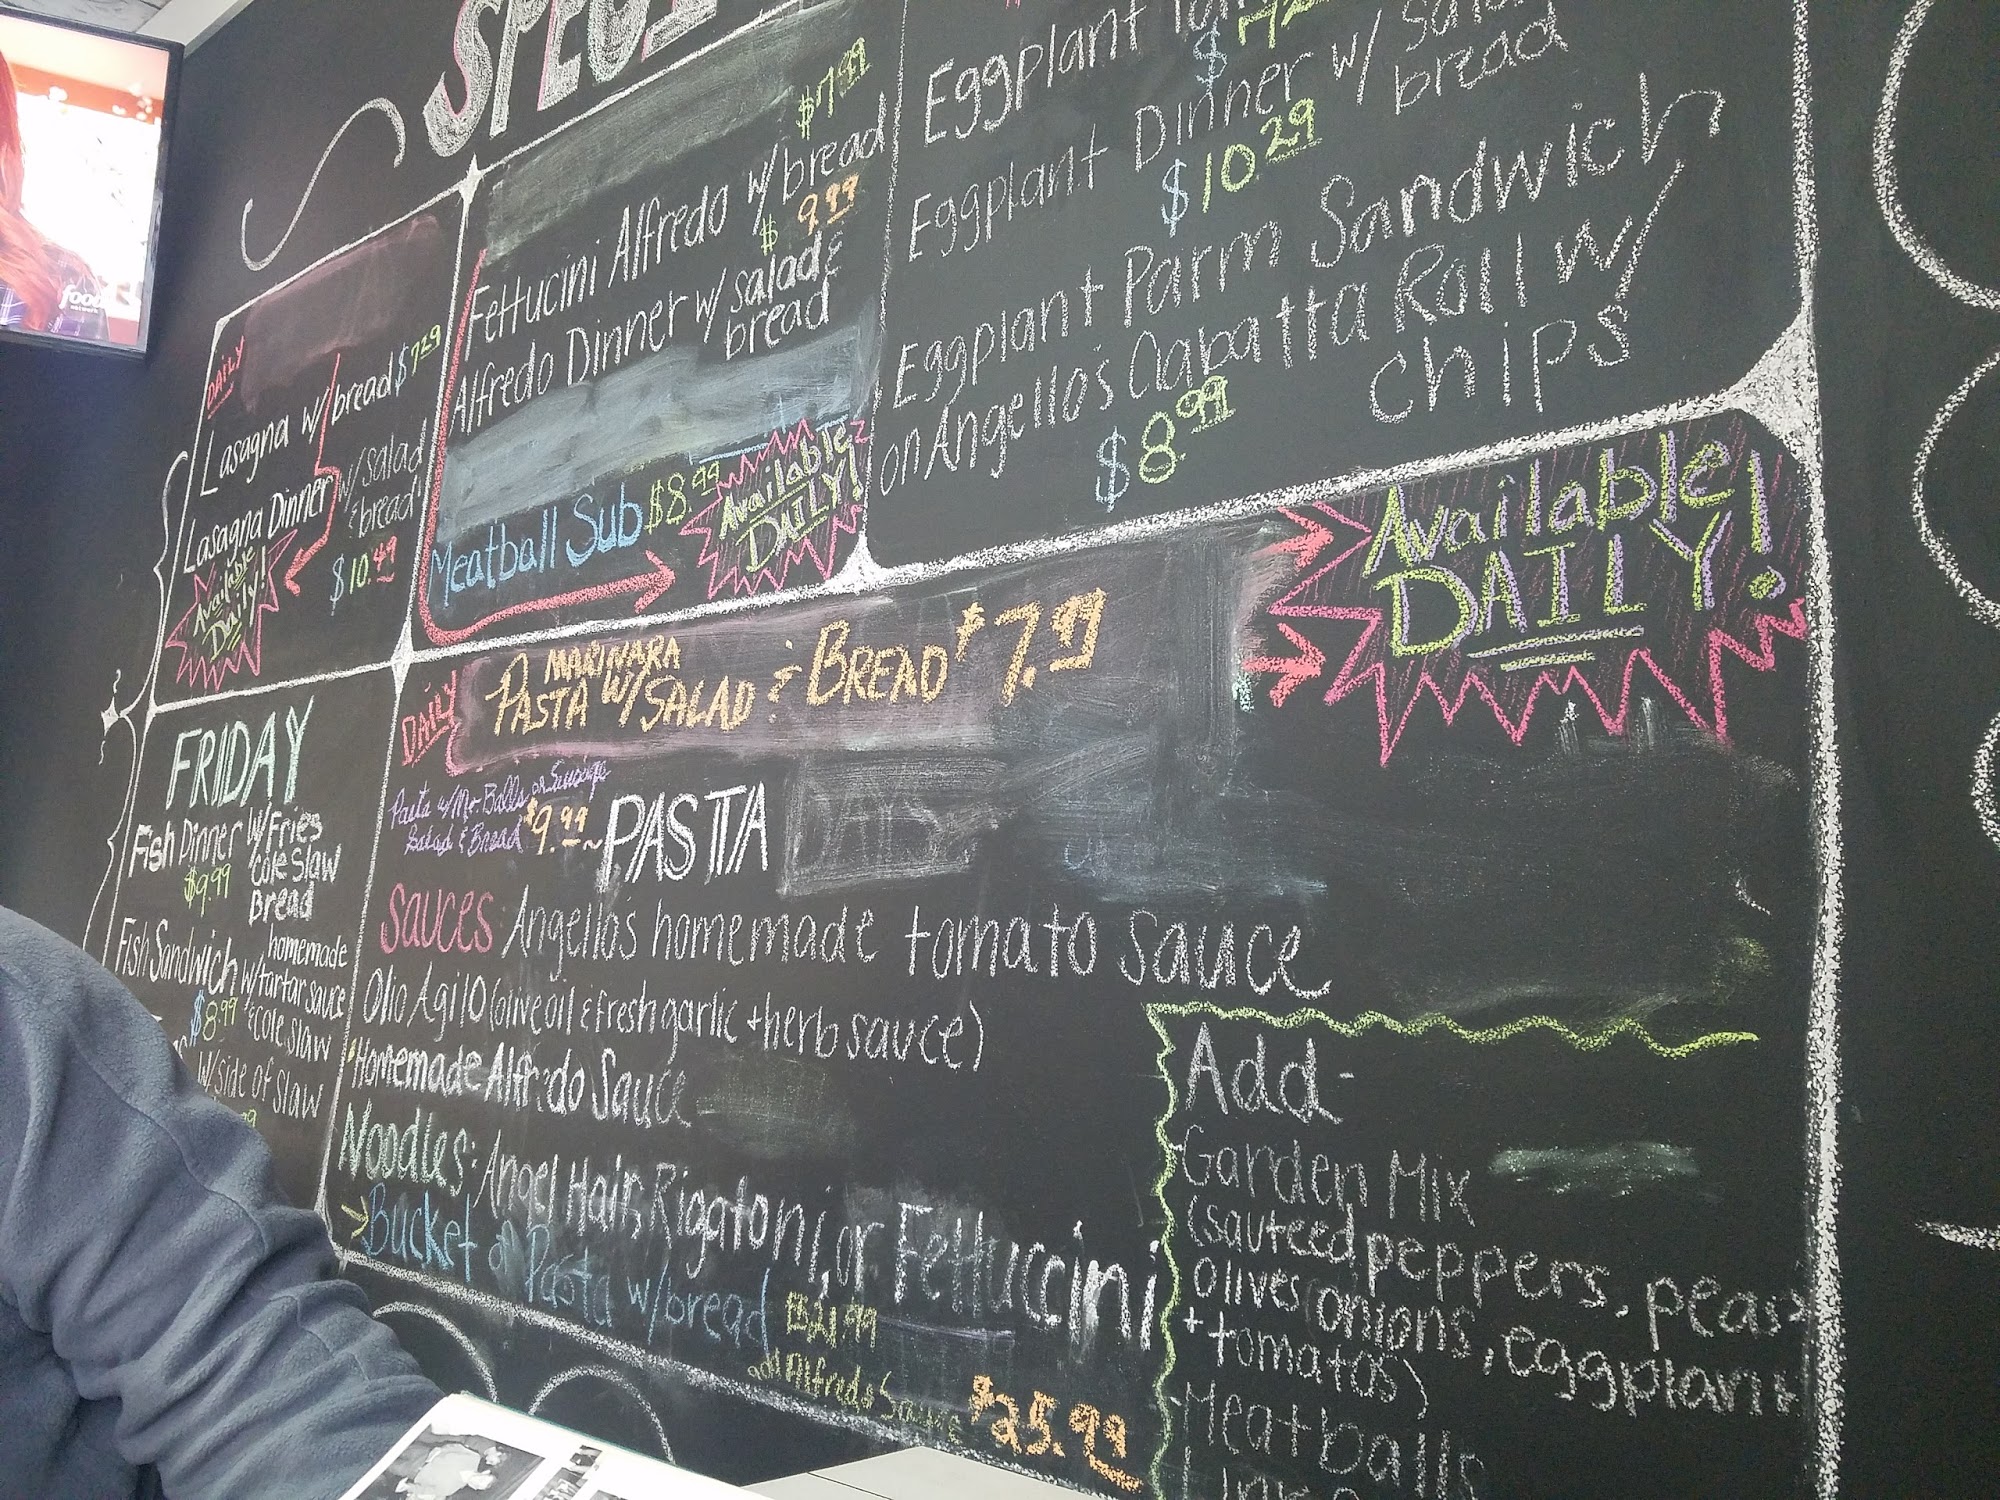 food
network
DAILY
Lasagna w/ bread $7.29
Lasagna Dinner w/ salad
& bread
$10.49
Available
Daily!
$7.99
Fettucini Alfredo w/ bread
$ 9.99
Alfredo Dinner w/ salad &
bread
Meatball Sub $8.49
Available
DAILY!
Eggplant
$
Eggplant Dinner w/
bread
$10.29
Eggplant Parm Sandwich
on Angello's Ciabatta Roll w/
chips
$8.99
Available
DAILY!
FRIDAY
Fish Dinner w/ Fries
$9.99 Cole Slaw
Bread
Fish Sandwich homemade
w/ tartar sauce
$8.99 & cole slaw
w/ side of slaw
DAILY
MARINARA
PASTA W/ SALAD & BREAD $7.99
Pasta w/ Mt. Balls or Sausage
Salad & Bread $9.99 ~
PASTA
SAUCES: Angello's homemade tomato sauce
Olio Agilo (olive oil & fresh garlic + herb sauce)
Homemade Alfredo Sauce
Noodles: Angel Hair, Rigatoni, or Fettuccini
→ Bucket of Pasta w/ bread $21.99
add Alfredo Sauce $25.99
Add-
Garden Mix
(sauteed peppers, peas
olives onions, eggplant
+ tomatos)
Meatballs